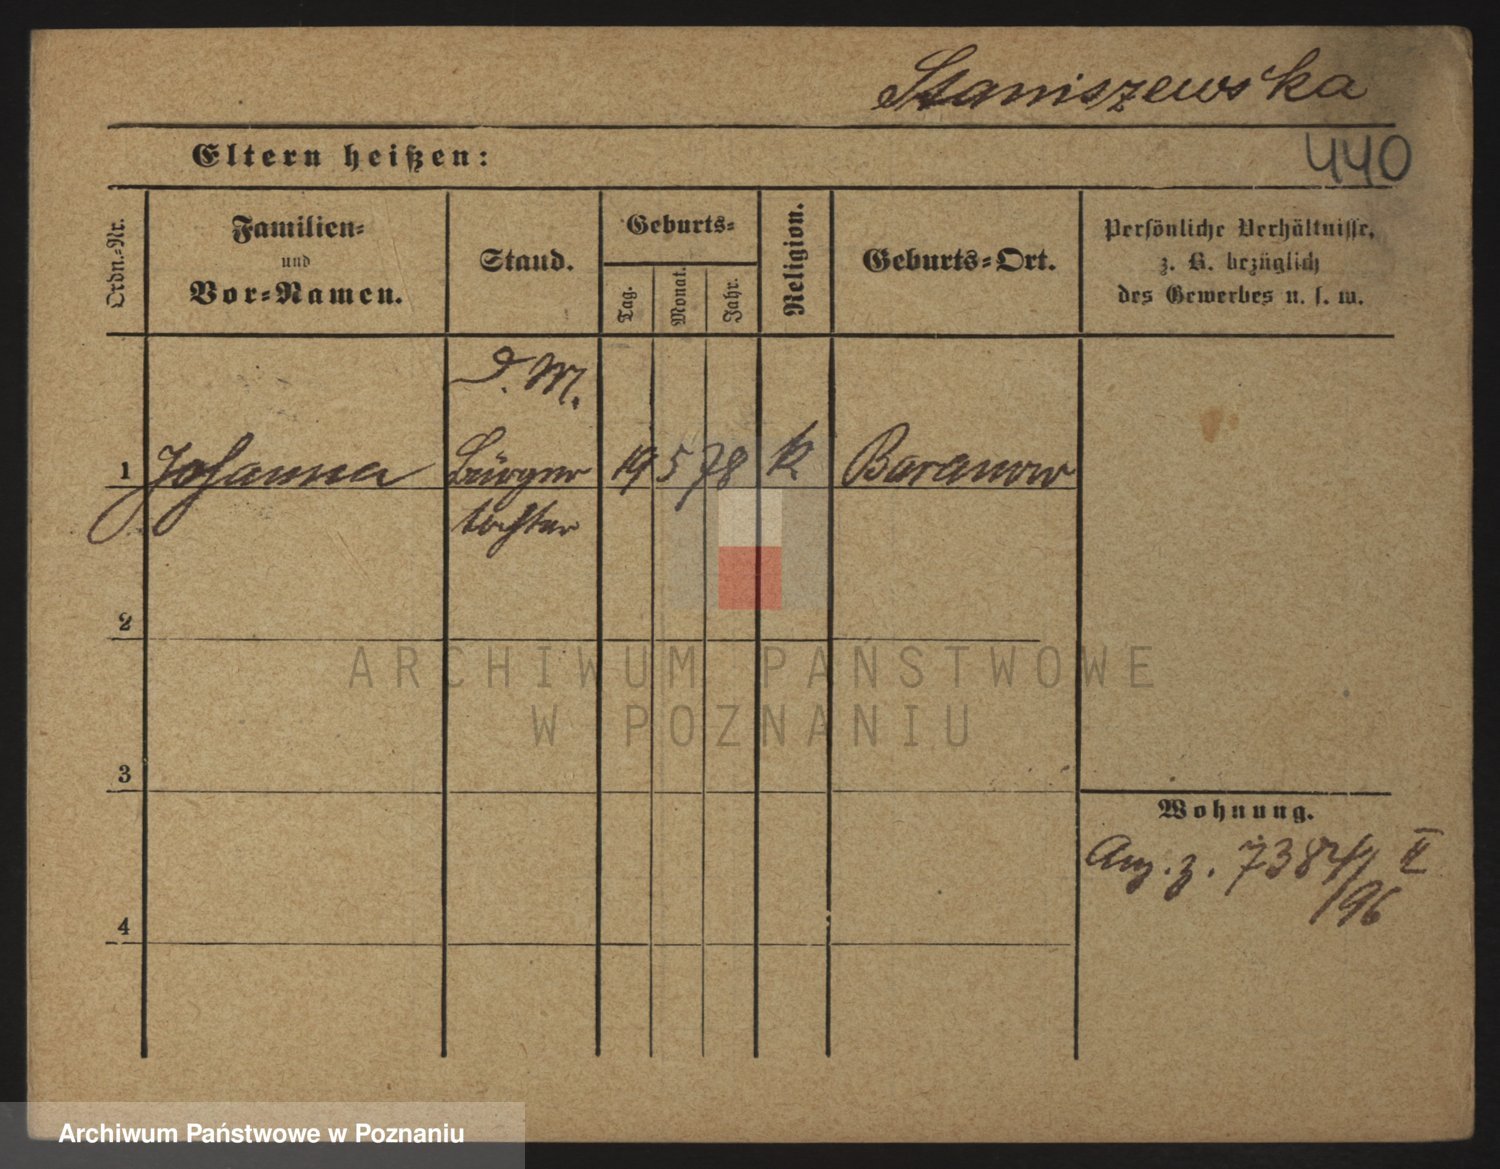 Staniszewska
Eltern heißen:
440
Ordn.=Nr.
Familien=
und
Vor=Namen.
Stand.
Geburts=
Tag.
Monat.
Jahr.
Religion.
Geburts=Ort.
Persönliche Verhältnisse,
z. B. bezüglich
des Gewerbes u. s. w.
D. M.
1 Johanna Bürger 19 5 78 k Baranow
tochter
2
ARCHIWUM PAŃSTWOWE
W POZNANIU
3
Wohnung.
Anz. z. 7384/96 II
4
Archiwum Państwowe w Poznaniu